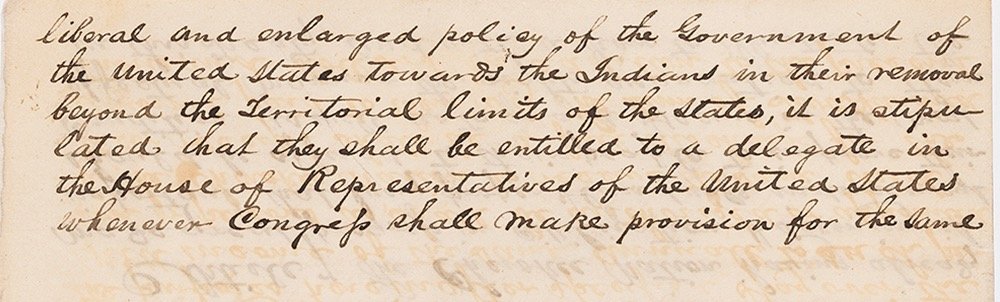 liberal and enlarged policy of the Government of
the United States towards the Indians in their removal
beyond the Territorial limits of the States, it is stipu-
lated that they shall be entitled to a delegate in
the House of Representatives of the United States
whenever Congreſs shall make provision for the same